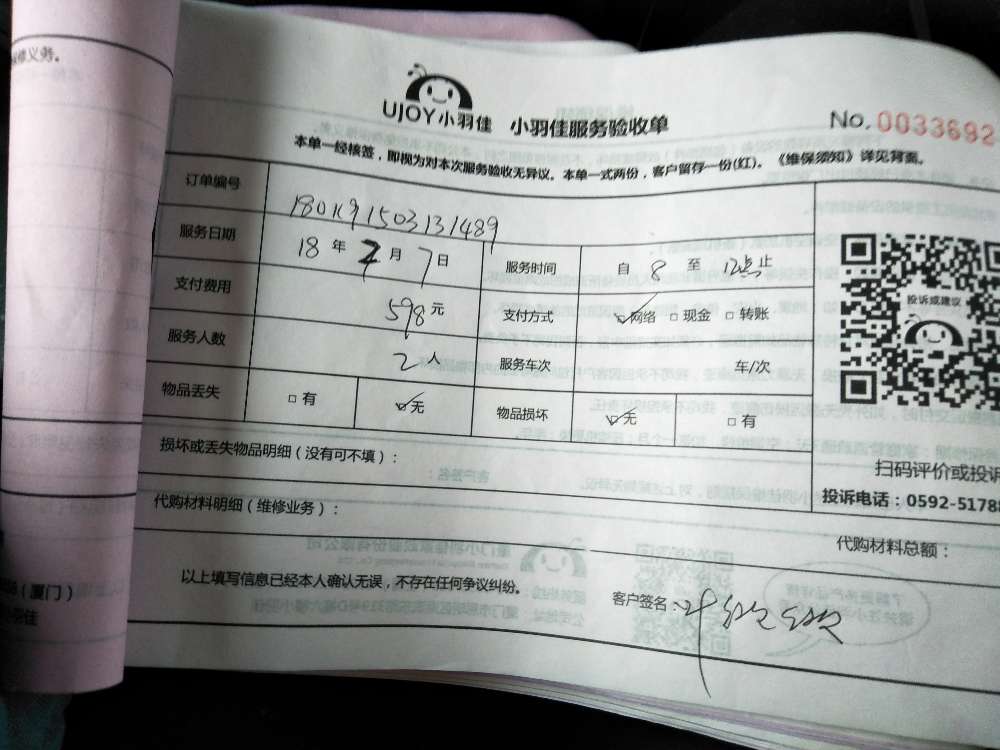 修义务。
UJOY小羽佳 小羽佳服务验收单 No. 0033692
本单一经核签，即视为对本次服务验收无异议。本单一式两份，客户留存一份(红)。《维保须知》详见背面。
订单编号
服务日期 18 年 2 月 7 日 服务时间 自 8 至 12点 止
支付费用 598 元 支付方式 网络 现金 转账
服务人数 2 人 服务车次 车/次
物品丢失 有 无 物品损坏 无 有
投诉或建议
损坏或丢失物品明细（没有可不填）：
扫码评价或投诉
投诉电话：0592-5178
代购材料明细（维修业务）：
代购材料总额：
（厦门）
以上填写信息已经本人确认无误，不存在任何争议纠纷。
客户签名：